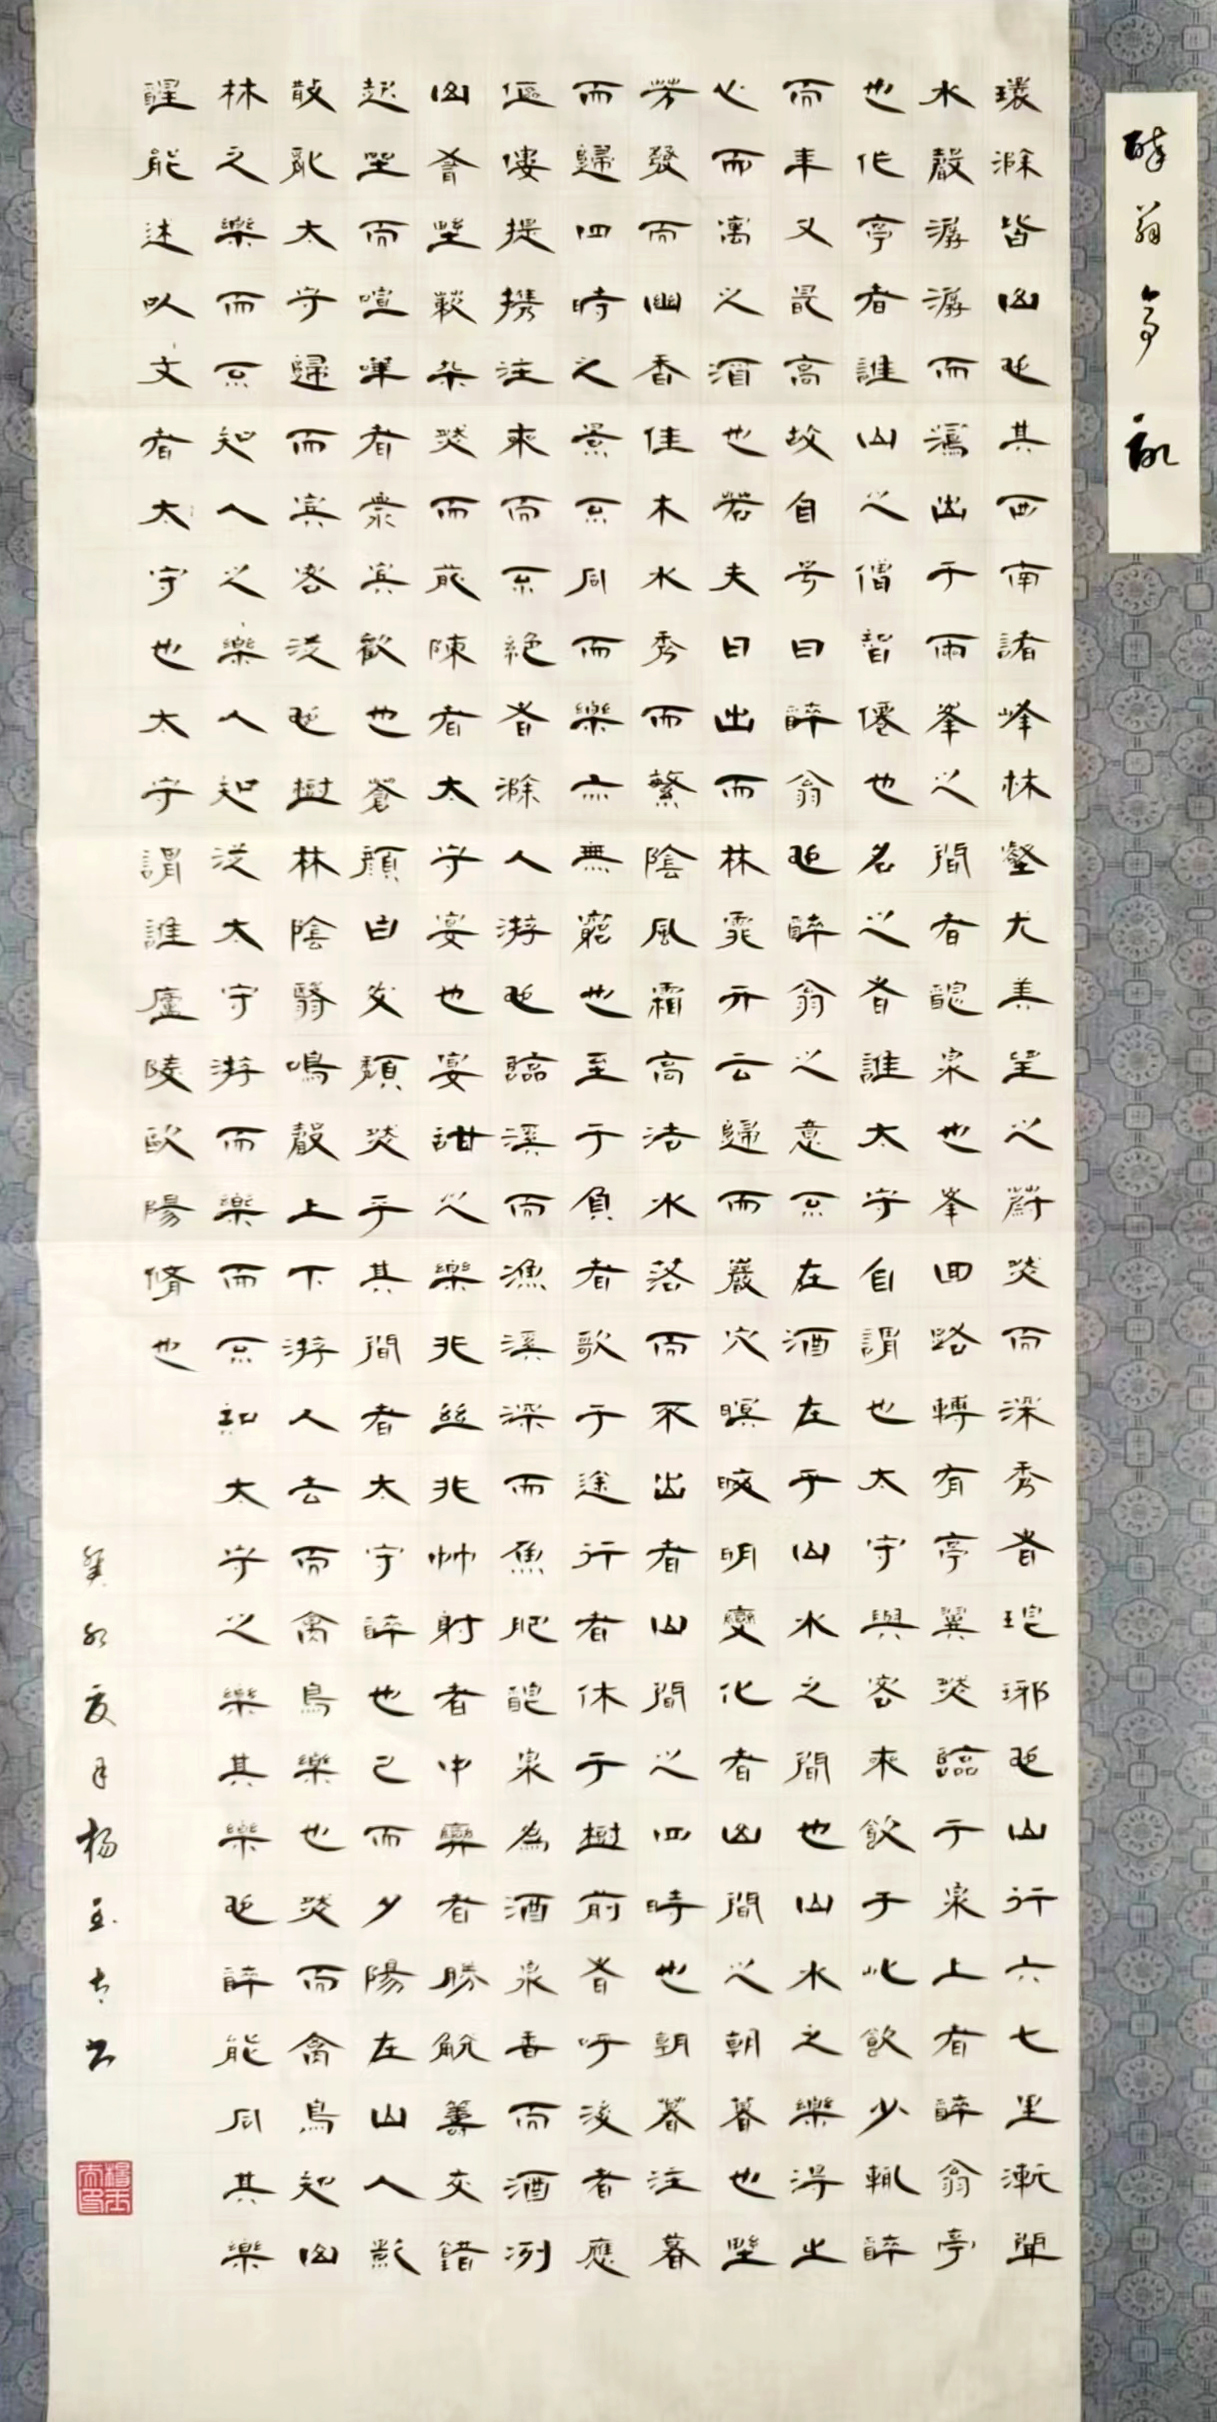 醉翁亭記
環滁皆山也其西南諸峰林壑尤美望之蔚然而深秀者琅琊也山行六七里漸聞
水聲潺潺而瀉出于兩峯之間者釀泉也峯回路轉有亭翼然臨于泉上者醉翁亭
也作亭者誰山之僧智僊也名之者誰太守自謂也太守與客來飲于此飲少輒醉
而年又最高故自号曰醉翁也醉翁之意不在酒在乎山水之間也山水之樂得之
心而寓之酒也若夫日出而林霏開云歸而巖穴暝晦明變化者山間之朝暮也野
芳發而幽香佳木水秀而繁陰風霜高洁水落而石出者山間之四時也朝暮往暮
而歸四時之景不同而樂亦無窮也至于負者歌于途行者休于樹前者呼後者應
傴僂提携往來而不絕者滁人游也臨溪而漁溪深而魚肥釀泉為酒泉香而酒冽
山肴野蔌杂然而前陳者太守宴也宴酣之樂非絲非竹射者中弈者勝觥籌交錯
起坐而喧嘩者衆賓歡也蒼顏白发頹然乎其間者太守醉也已而夕陽在山人影
散亂太守歸而賓客從也樹林陰翳鳴聲上下游人去而禽鳥樂也然而禽鳥知山
林之樂而不知人之樂人知從太守游而樂而不知太守之樂其樂也醉能同其樂
醒能述以文者太守也太守謂誰廬陵歐陽脩也
癸卯夏月杨玉大书